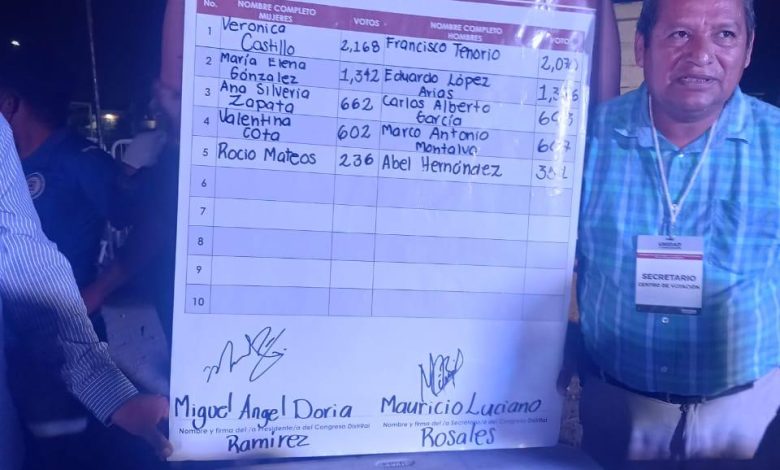 No.
NOMBRE COMPLETO MUJERES
VOTOS
NOMBRE COMPLETO HOMBRES
1 Veronica Castillo 2,168 Francisco Tenorio
2 María Elena Gónzalez 1,342 Eduardo López Arias
3 Ana Silveria Zapata 662 Carlos Alberto García
4 Valentina Cota 602 Marco Antonio Montalvo
5 Rocio Mateos 236 Abel Hernández
6
7
8
9
10
Miguel Angel Doria Mauricio Luciano
Nombre y firma del /a Presidente/a del Congreso Distrital Nombre y firma del /a Secretario/a del Congreso Distrital
Ramirez Rosales
UNIDAD
SECRETARIO
CENTRO DE VOTACIÓN